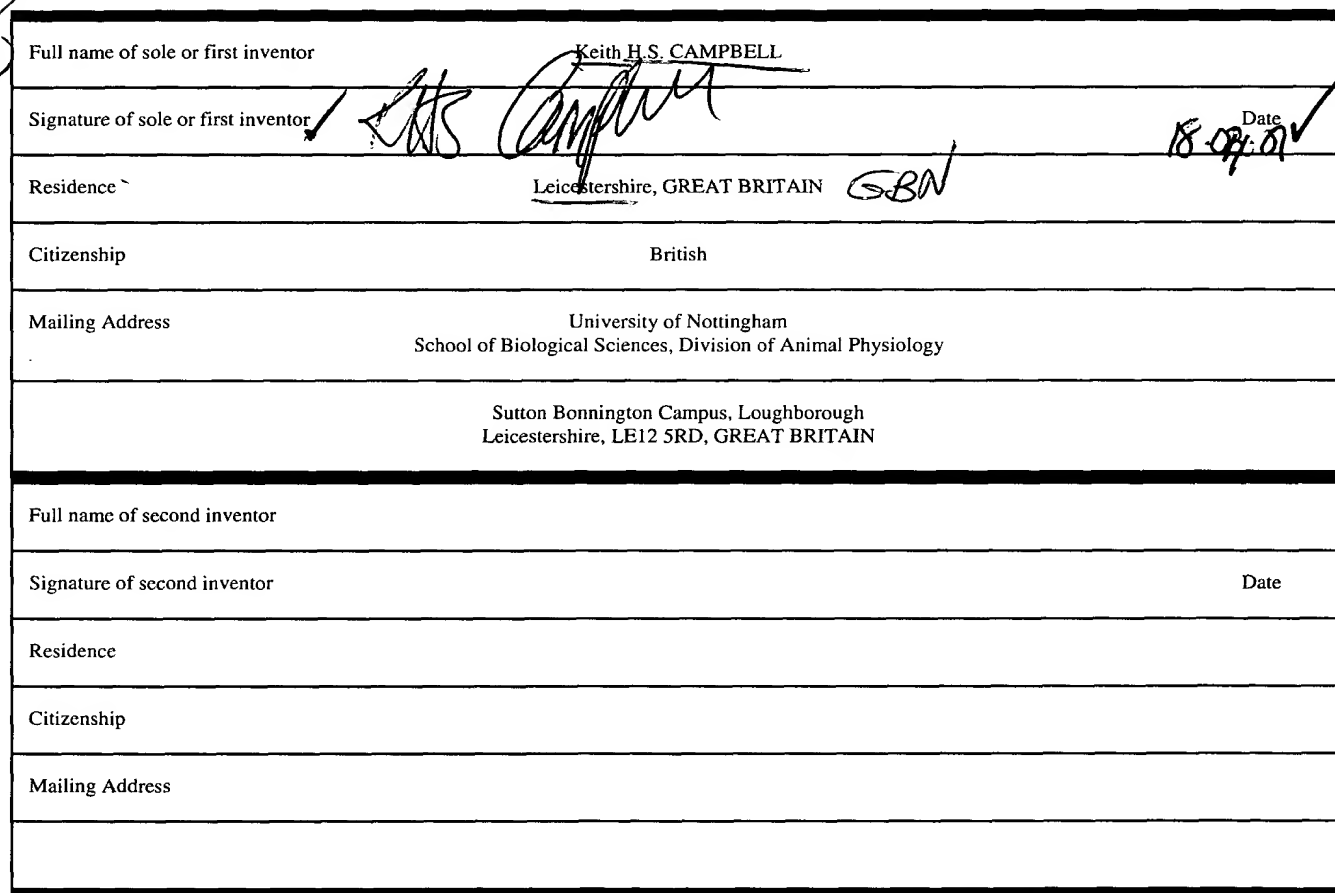 Full name of sole or first inventor Keith H.S. CAMPBELL
Signature of sole or first inventor KHS Campbell Date
Residence Leicestershire, GREAT BRITAIN GBN
Citizenship British
Mailing Address University of Nottingham
School of Biological Sciences, Division of Animal Physiology
Sutton Bonnington Campus, Loughborough
Leicestershire, LE12 5RD, GREAT BRITAIN
Full name of second inventor
Signature of second inventor Date
Residence
Citizenship
Mailing Address